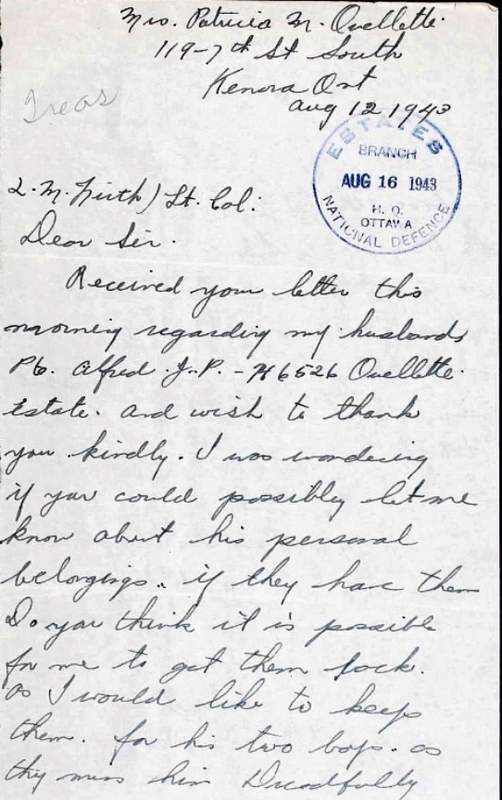 Mrs. Patricia M. Ouellette.
119-7th St South
Kenora Ont
Aug 12 1943
Treas
ESTATES
BRANCH
AUG 16 1943
H. Q.
OTTAWA
NATIONAL DEFENCE
L. M. Firth) Lt. Col:
Dear Sir.
Received your letter this
morning regarding my husbands
Pte. Alfred. J. P. - H6526 Ouellette.
Estate. and wish to thank
you kindly. I was wondering
if you could possibly let me
know about his personal
belongings.. if they have them
Do you think it is possible
for me to get them back.
as I would like to keep
them. for his two boys. as
they miss him Dreadfully